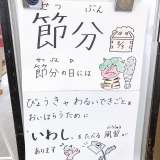 せつ ぶん
節分
せつぶん ひ
節分の日には
びょうきや わるいできごとを
おいはらうために
「いわし」をたべる風習が
あります